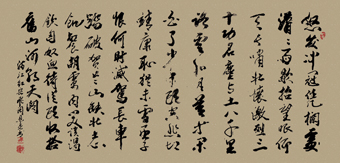 怒发冲冠凭栏处
潇潇雨歇抬望眼仰
天长啸壮怀激烈三
十功名尘与土八千里
路云和月莫等闲
白了少年头空悲切
靖康耻犹未雪臣子
恨何时灭驾长车
踏破贺兰山缺壮志
饥餐胡虏肉笑谈渴
饮匈奴血待从头收拾
旧山河朝天阙